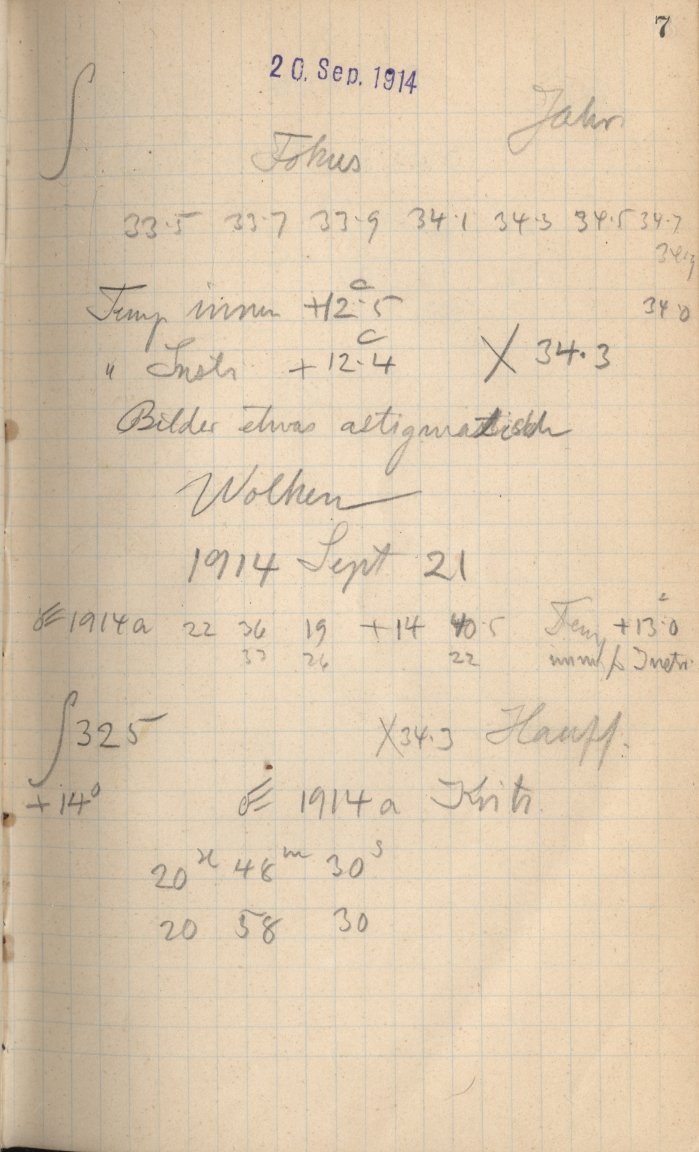 7
20. Sep. 1914
Jahr
Fokus
33.5 33.7 33.9 34.1 34.3 34.5 34.7
34.9
Temp innen +12.5 C 34.0
" Instr +12.4 C X 34.3
Bilder etwas astigmatisch
Wolken
1914 Sept 21
☄ 1914a 22 36 19 +14 40.5 Temp +13.0 c
37 26 22 innen Instr.
∫ 325 X 34.3 Hauff.
+14°
☄ 1914a Kritz
20 h 48 m 30 s
20 58 30